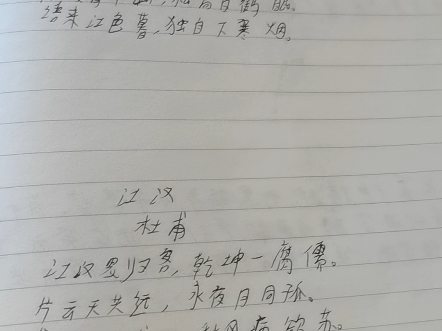 白鹤眠。
归来江色暮,独自下寒烟。
江汉
杜甫
江汉思归客,乾坤一腐儒。
片云天共远,永夜月同孤。
秋风病欲苏。